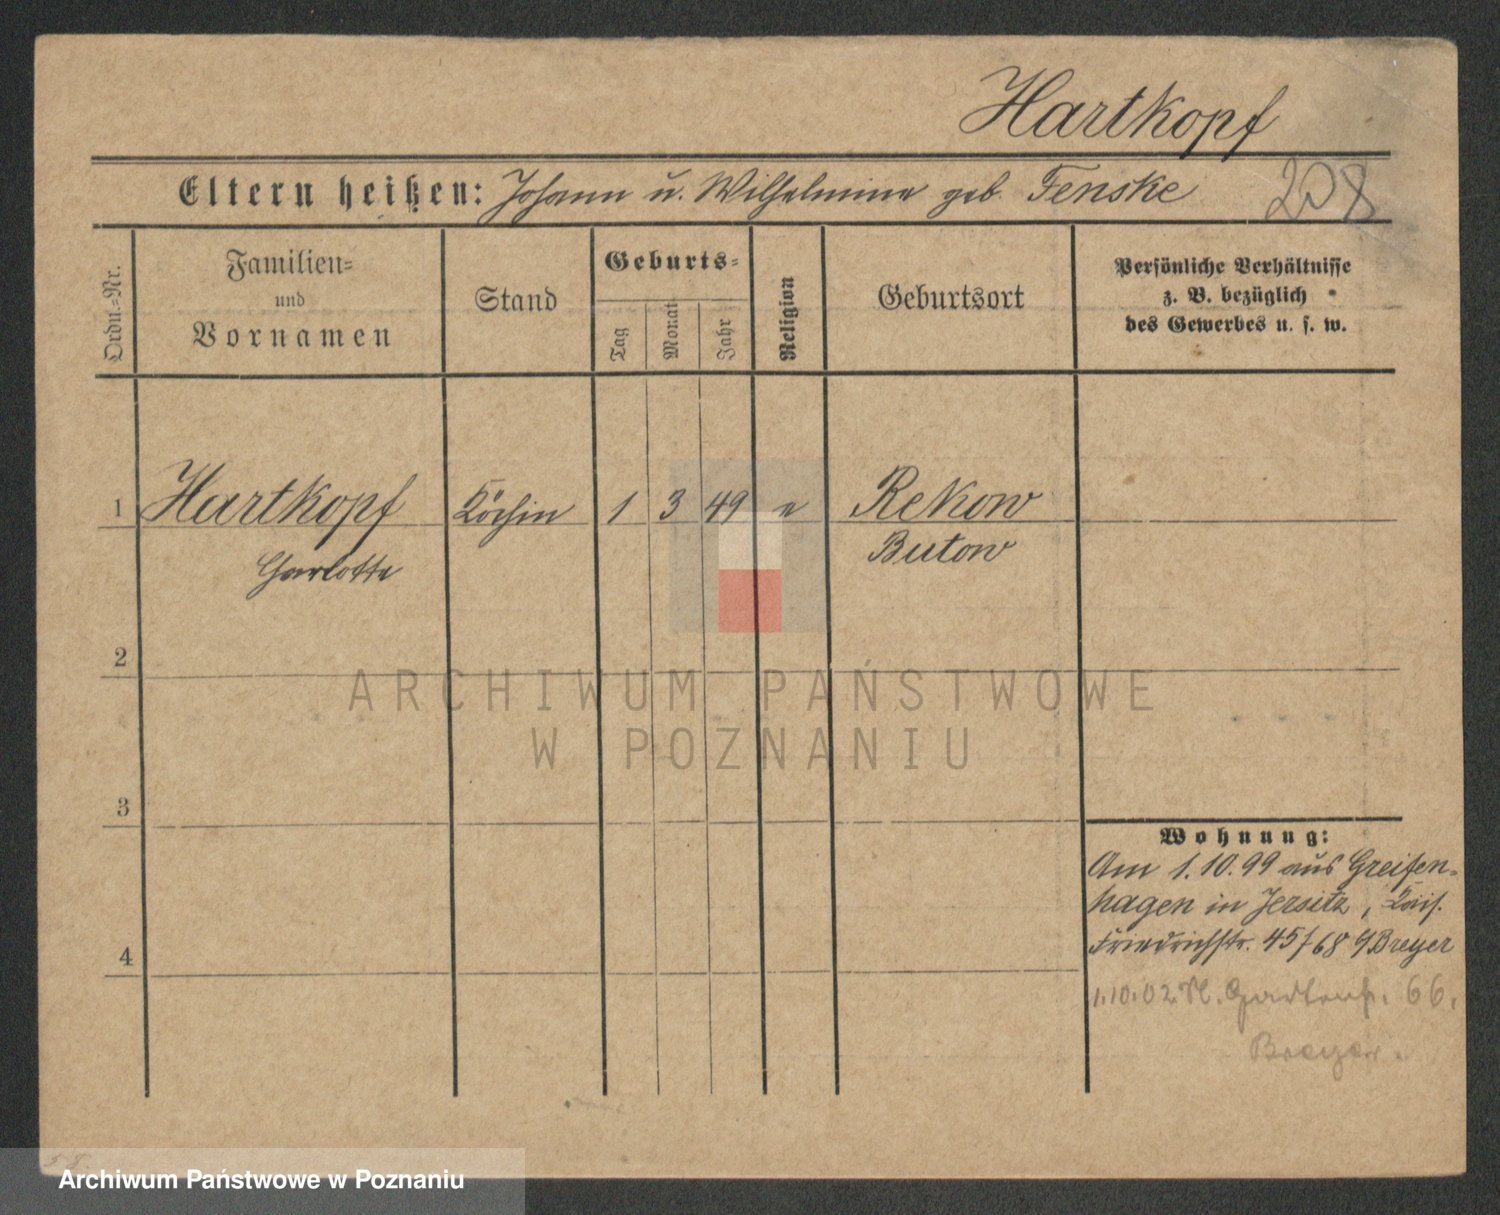 Hartkopf
Eltern heißen: Johann u. Wilhelmine geb. Fenske 208
Ordn.=Nr.
Familien=
und
Vornamen
Stand
Geburts=
Tag
Monat
Jahr
Religion
Geburtsort
Persönliche Verhältnisse
z. B. bezüglich
des Gewerbes u. s. w.
1 Hartkopf Köchin 1 3 49 e Rekow
Charlotte Butow
2
ARCHIWUM PAŃSTWOWE
W POZNANIU
3
Wohnung:
Am 1.10.99 aus Greifen-
hagen in Jersitz, Kais.
Friedrichstr. 45/68 b/Breyer
4
1.10.02 N. Gartenstr. 66.
Breyer.
Archiwum Państwowe w Poznaniu